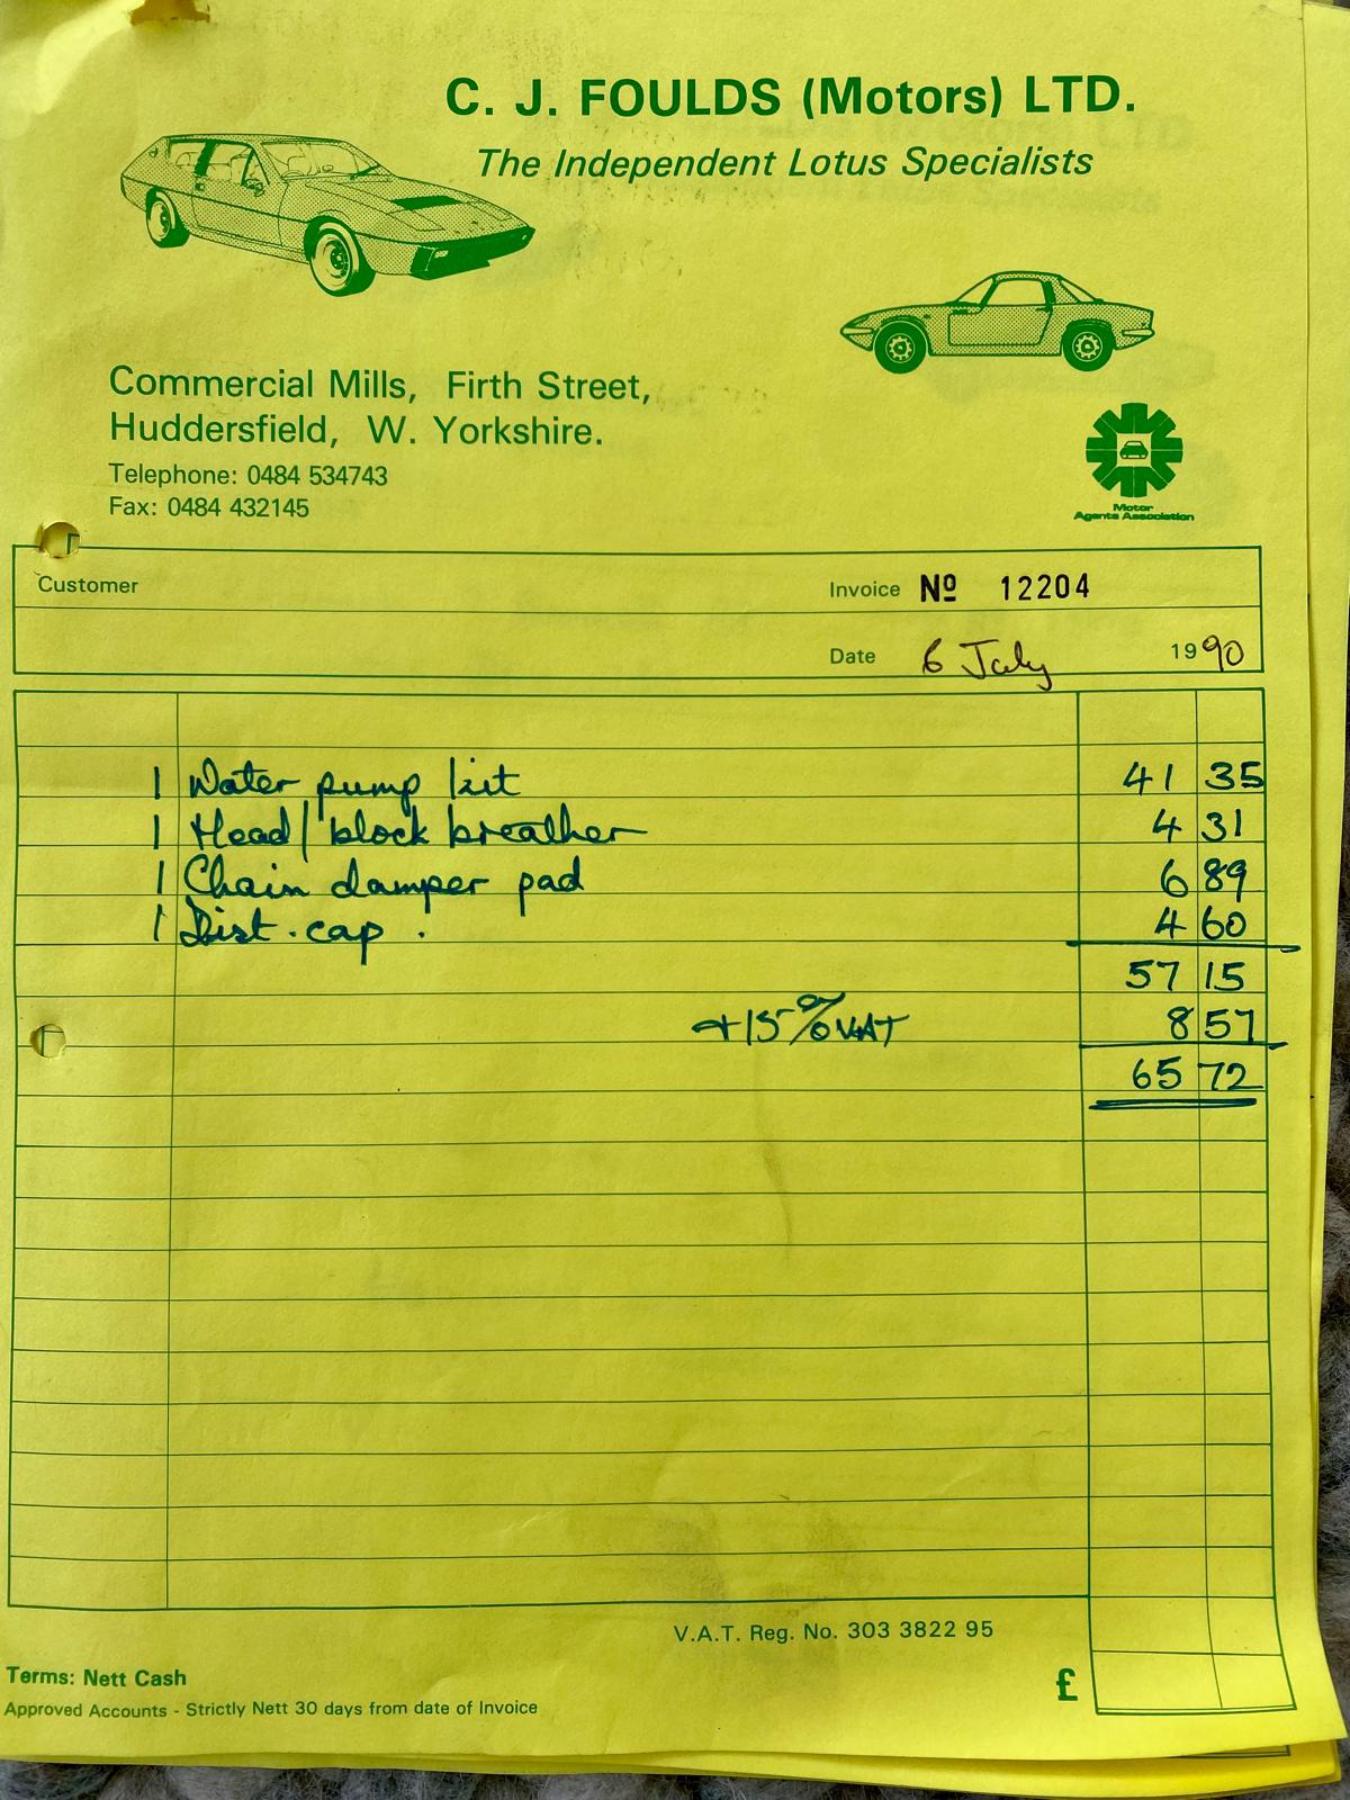 C. J. FOULDS (Motors) LTD.
The Independent Lotus Specialists
Commercial Mills, Firth Street,
Huddersfield, W. Yorkshire.
Telephone: 0484 534743
Fax: 0484 432145
Motor
Agents Association
Customer
Invoice Nº 12204
Date 6 July 1990
1 Water pump kit 41 35
1 Head/block breather 4 31
1 Chain damper pad 6 89
1 Dist. cap. 4 60
57 15
+15% VAT 8 57
65 72
V.A.T. Reg. No. 303 3822 95
Terms: Nett Cash
£
Approved Accounts - Strictly Nett 30 days from date of Invoice